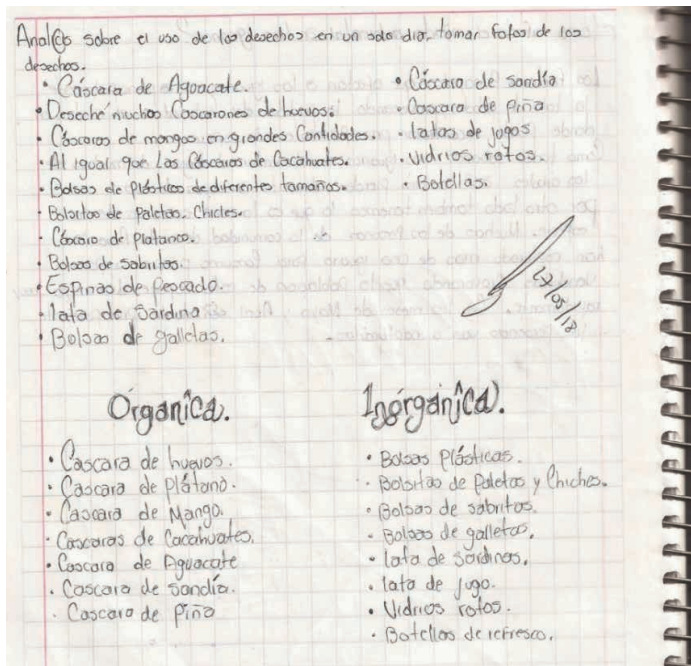 Analisis sobre el uso de los desechos en un solo día. tomar fotos de los
desechos.
• Cáscara de Aguacate.
• Deseché muchos Cascarones de huevos.
• Cáscaras de mangos en grandes Cantidades.
• Al igual que Las Cáscaras de Cacahuates.
• Bolsas de Plástico de diferentes tamaños.
• Bolsitas de Paletas, Chicles.
• Cáscara de Platanos.
• Bolsas de sabritas.
• Espinas de Pescado.
• lata de Sardina
• Bolsas de galletas.
• Cáscara de sandía
• Cascara de Piña
• latas de jugos
• Vidrios rotos.
• Botellas.
27/05/18
Órganica.
• Cascara de huevos.
• Cascara de Plátano.
• Cascara de Mango.
• Cascaras de Cacahuates.
• Cascara de Aguacate
• Cascara de sandía.
• Cascara de Piña
Inórganica.
• Bolsas Plásticas.
• Bolsitas de Paletas y Chiches.
• Bolsas de sabritas.
• Bolsas de galletas.
• lata de sardinas.
• lata de jugo.
• Vidrios rotos.
• Botellas de refresco.